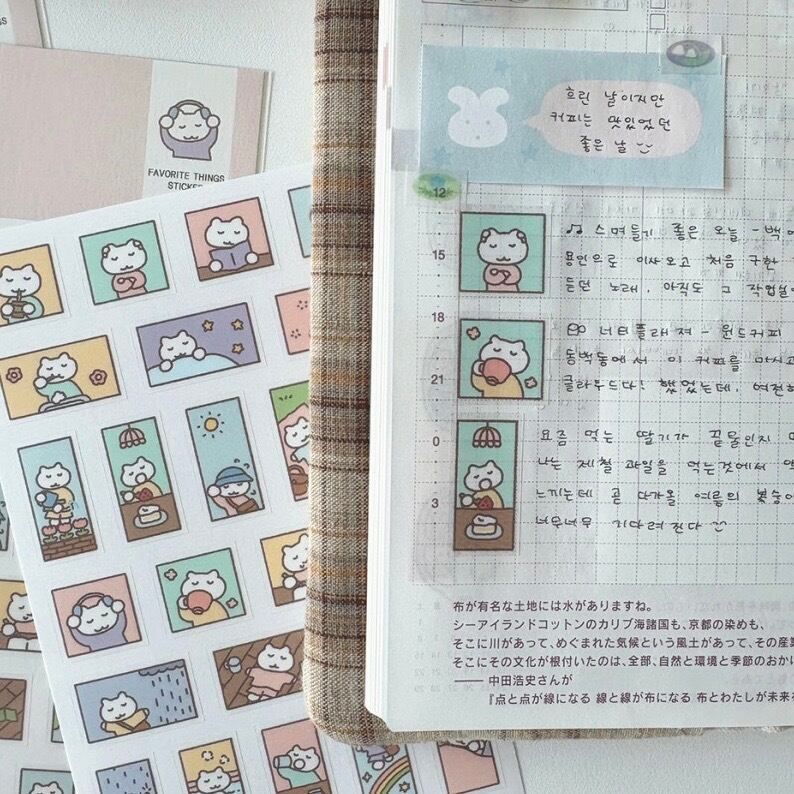 FAVORITE THINGS
STICKER
흐린 날이지만
커피는 맛있었던
좋은 날
12
15
18
21
0
3
♫ 스며들기 좋은 오늘 - 백
용인으로 이사오고 처음 구한
듣던 노래. 아직도 그 작업실
너티플래져 - 윈드커피
동백동에서 이 커피를 마시고
클라우드다! 했었는데, 여전히
요즘 먹는 딸기가 끝물인지
나는 제철 과일을 먹는것에서
느끼는데 곧 다가올 여름의 복숭아
너무너무 기다려진다
布が有名な土地には水がありますね。
シーアイランドコットンのカリブ海諸国も、京都の染めも、
そこに川があって、めぐまれた気候という風土があって、その産業
そこにその文化が根付いたのは、全部、自然と環境と季節のおか
—— 中田浩史さんが
『点と点が線になる 線と線が布になる 布とわたしが未来を